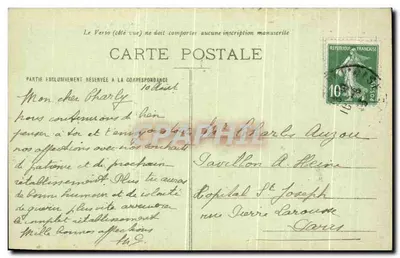 Le Verso (côté vue) ne doit comporter aucune inscription manuscrite
CARTE POSTALE
PARTIE EXCLUSIVEMENT RÉSERVÉE A LA CORRESPONDANCE
RÉPUBLIQUE FRANÇAISE
10
10 Août
Mon cher Charly
nous continuons à bien
penser à toi et t'envoyons
nos affections avec nos souhaits
de patience et de prochain
rétablissement. Plus tu auras
de bonne humeur et de volonté
de guérir plus vite arrivera
le complet rétablissement
Mille bonnes affections
Charles Auzou
Pavillon A.
Hopital St Joseph
rue Pierre Larousse
Paris